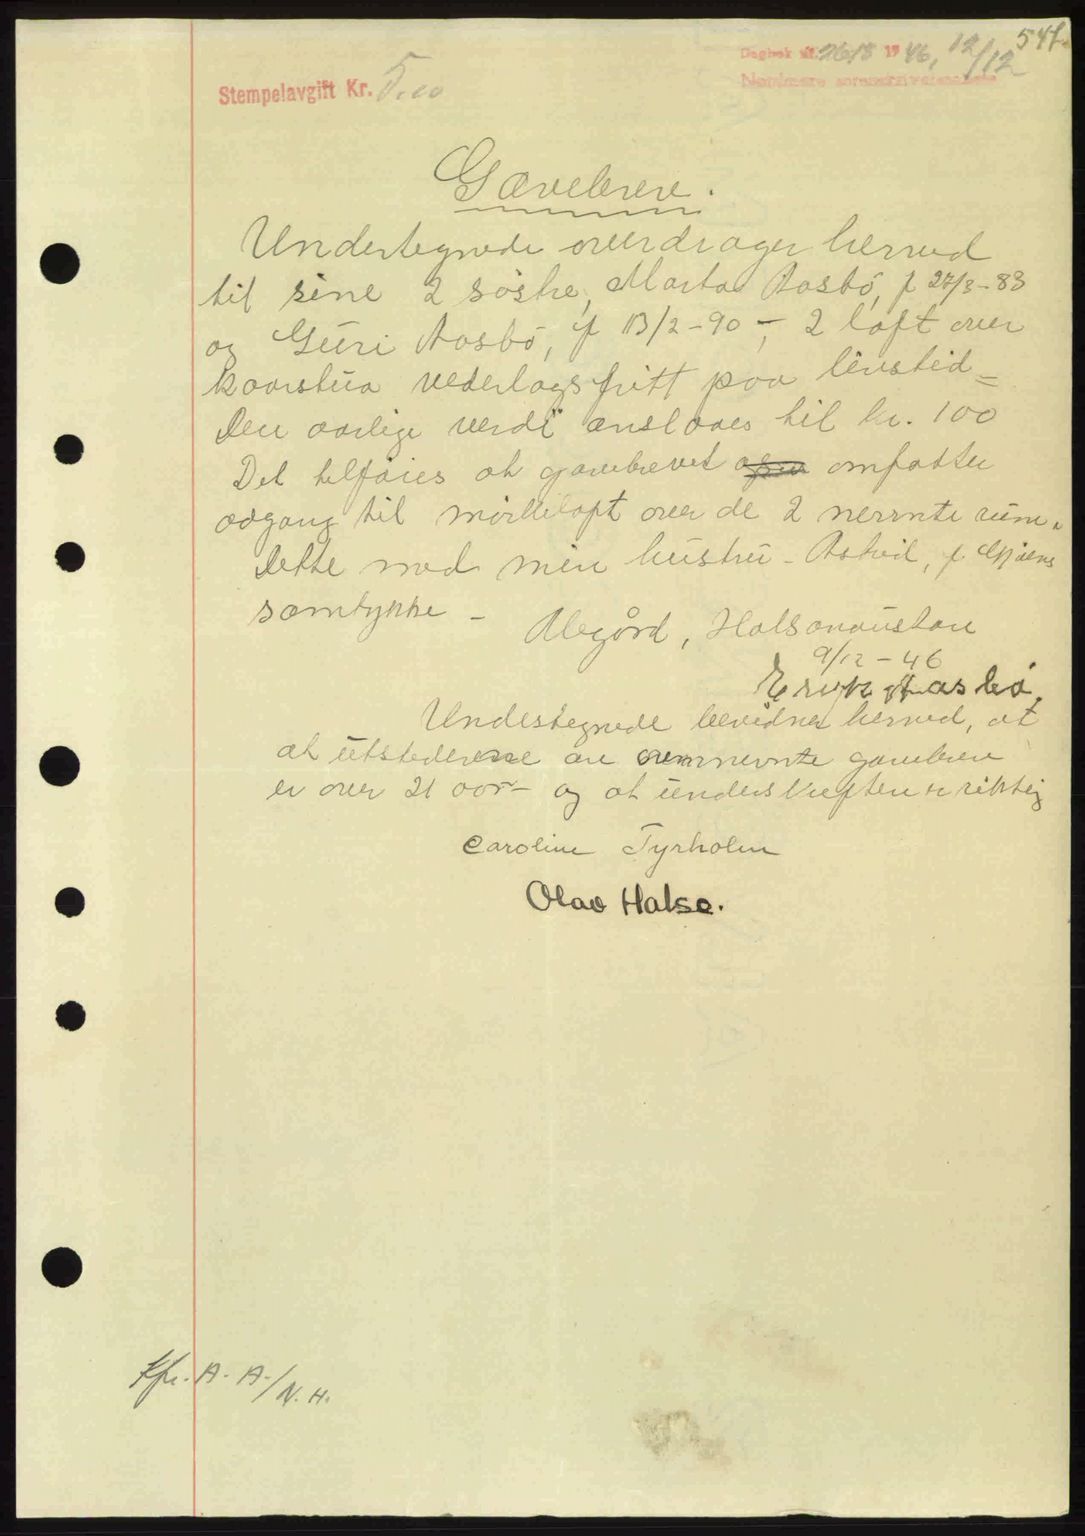 547.
Stempelavgift Kr. 5.00
Dagbok nr. 2618 1946, 12/12
Nordmøre sorenskriverembete
Gavebrev.
Undertegnede overdrager herved
til sine 2 søstre, Marta Aasbø, f 27/3-83
og Guri Aasbø, f 13/2-90 - 2 loft over
kaarstua vederlagsfritt paa livstid =
Den aarlige verdi anslaaes til kr. 100
Det tilføies at gavebrevet omfatter
adgang til mørkeloft over de 2 nevnte rum.
Dette med min hustru - Astrid, f.
samtykke -
Aasgård, Halsanaustan
9/12-46
Erik Aasbø.
Undertegnede bevidner herved, at
at utstederene av ovennevnte gavebrev
er over 21 aar - og at underskriften er riktig
Caroline Tyrholm
Olav Halse.
Kfr. A. A./N. H.